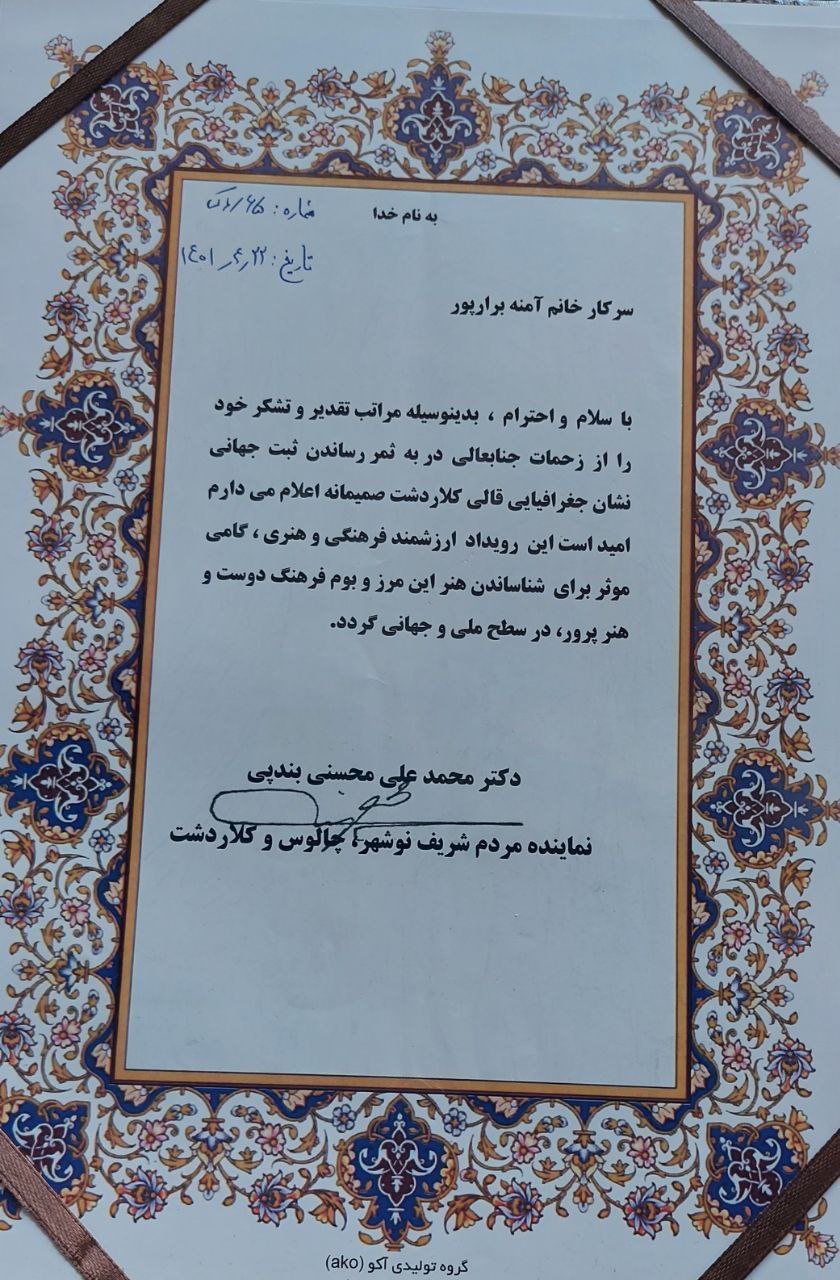 به نام خدا
شماره:
تاریخ: ۱۴۰۱٫۴٫۲۲
سرکار خانم آمنه برارپور
با سلام و احترام ، بدینوسیله مراتب تقدیر و تشکر خود
را از زحمات جنابعالی در به ثمر رساندن ثبت جهانی
نشان جغرافیایی قالی کلاردشت صمیمانه اعلام می دارم
امید است این رویداد ارزشمند فرهنگی و هنری ، گامی
موثر برای شناساندن هنر این مرز و بوم فرهنگ دوست و
هنر پرور، در سطح ملی و جهانی گردد.
دکتر محمد علی محسنی بندپی
نماینده مردم شریف نوشهر، چالوس و کلاردشت
گروه تولیدی آکو (ako)